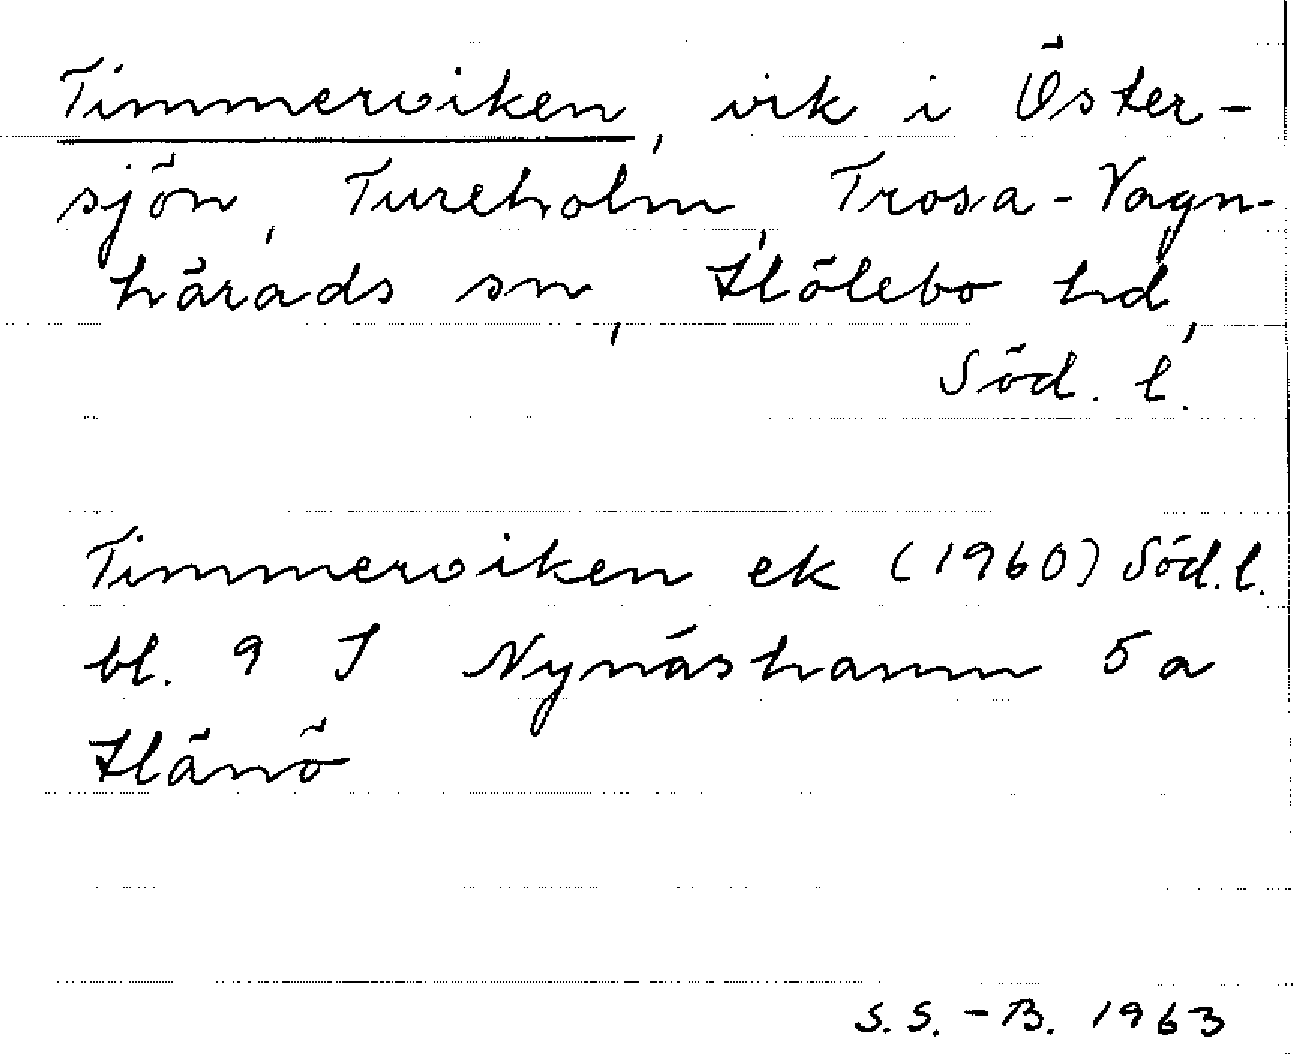 Timmerviken, vik i Öster-
sjön, Tureholm, Trosa-Vagn-
härads sn, Hölebo hd,
Söd. l.
Timmerviken ek (1960) Söd. l.
bl. 9 I Nynäshamn 5 a
Hånö
S. S. - B. 1963